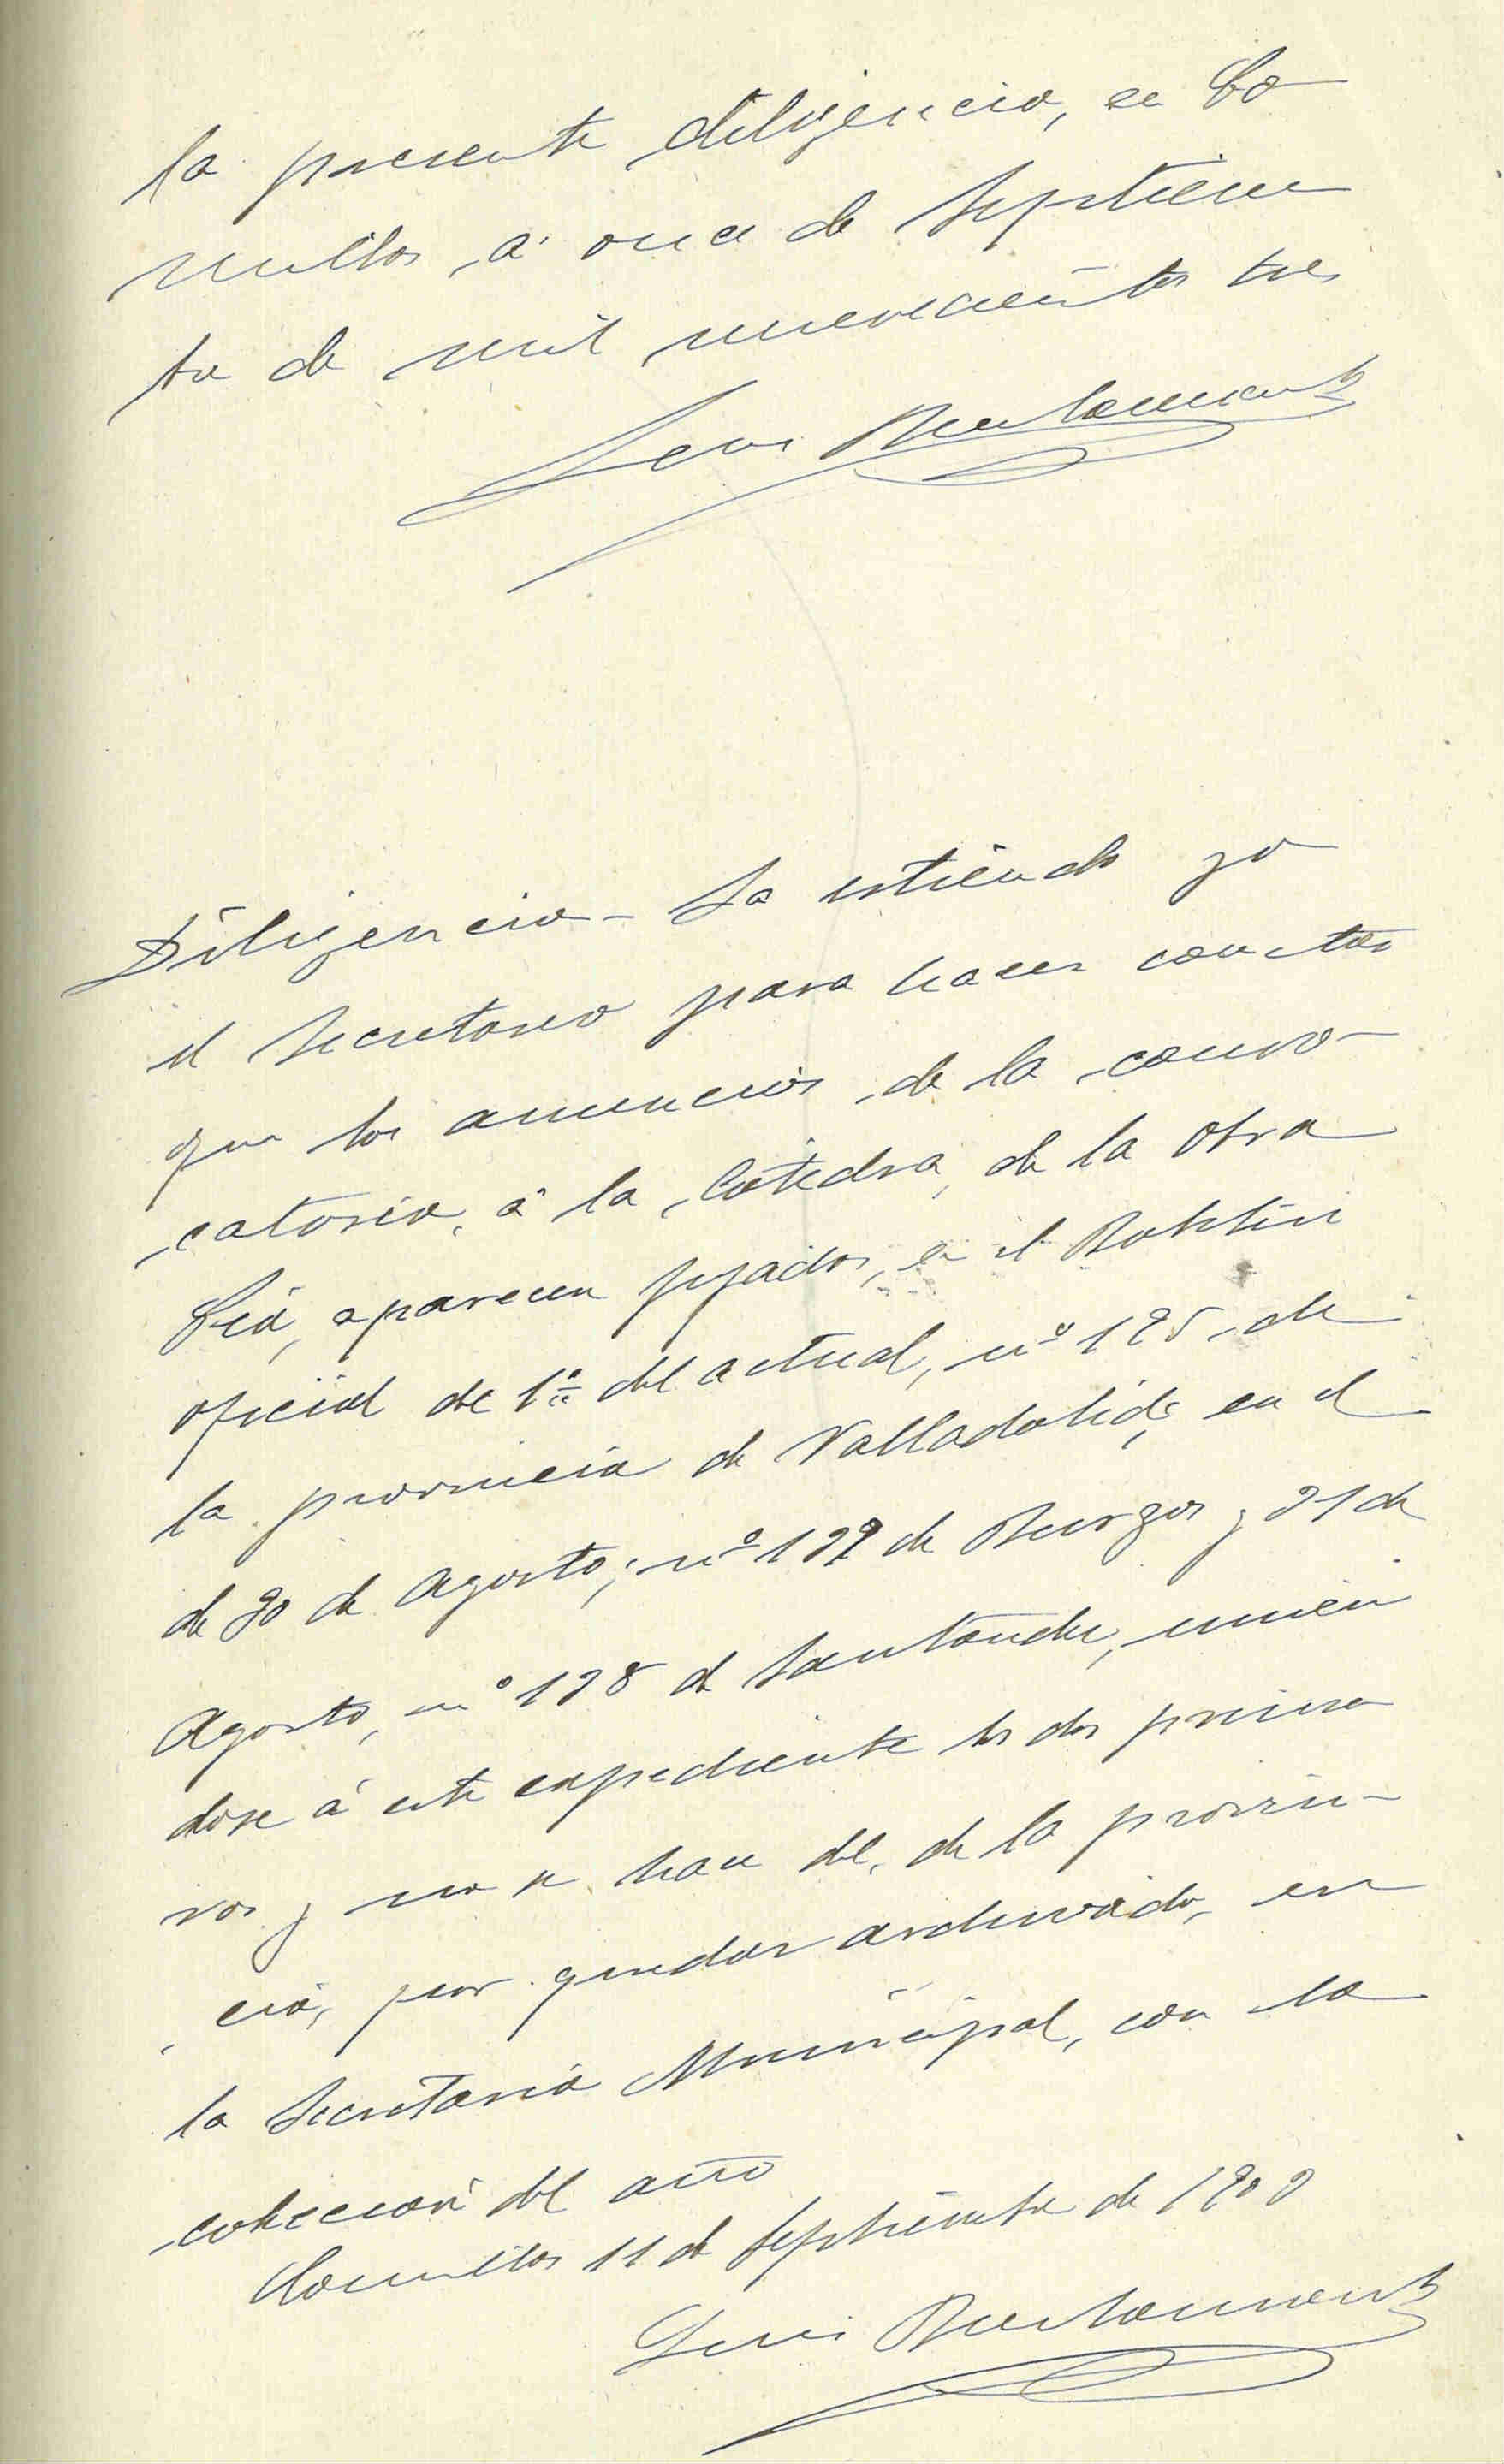 la presente diligencia, en Co
millas, á once de Septiem
bre de mil novecientos tres
Diligencia - La extiendo yo
el Secretario para hacer constar
que los anuncios de la convo-
catoria, á la Cátedra, de la Obra
Pía, aparecen fijados, en el Boletín
oficial de 1º del actual, nº 195 de
la provincia de Valladolid, en el
de 30 de Agosto, nº 139 de Burgos y 31 de
Agosto, nº 138 de Santander, unien
dose á este expediente los dos prime
ros y no se hace del, de la provin-
cia, por quedar archivado, en
la Secretaría Municipal, con la
colección del año
Comillas 11 de Septiembre de 1903